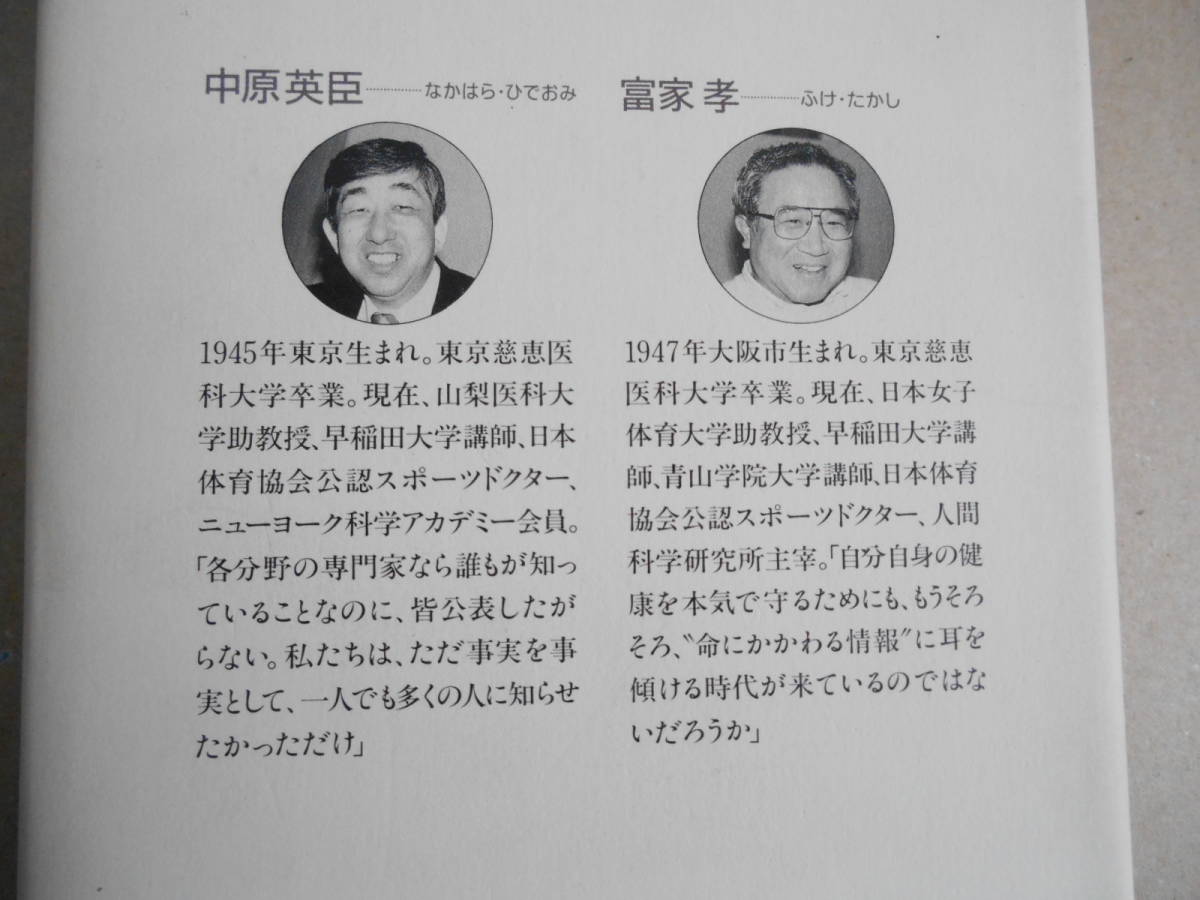 中原英臣………なかはら・ひでおみ
1945年東京生まれ。東京慈恵医
科大学卒業。現在、山梨医科大
学助教授、早稲田大学講師、日本
体育協会公認スポーツドクター、
ニューヨーク科学アカデミー会員。
「各分野の専門家なら誰もが知っ
ていることなのに、皆公表したが
らない。私たちは、ただ事実を事
実として、一人でも多くの人に知らせ
たかっただけ」
富家 孝………ふけ・たかし
1947年大阪市生まれ。東京慈恵
医科大学卒業。現在、日本女子
体育大学助教授、早稲田大学講
師、青山学院大学講師、日本体育
協会公認スポーツドクター、人間
科学研究所主宰。「自分自身の健
康を本気で守るためにも、もうそろ
そろ、〝命にかかわる情報〟に耳を
傾ける時代が来ているのではな
いだろうか」